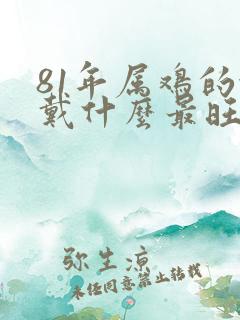 81年属鸡的
戴什麼最旺
弥生凉
未经同意禁止转载